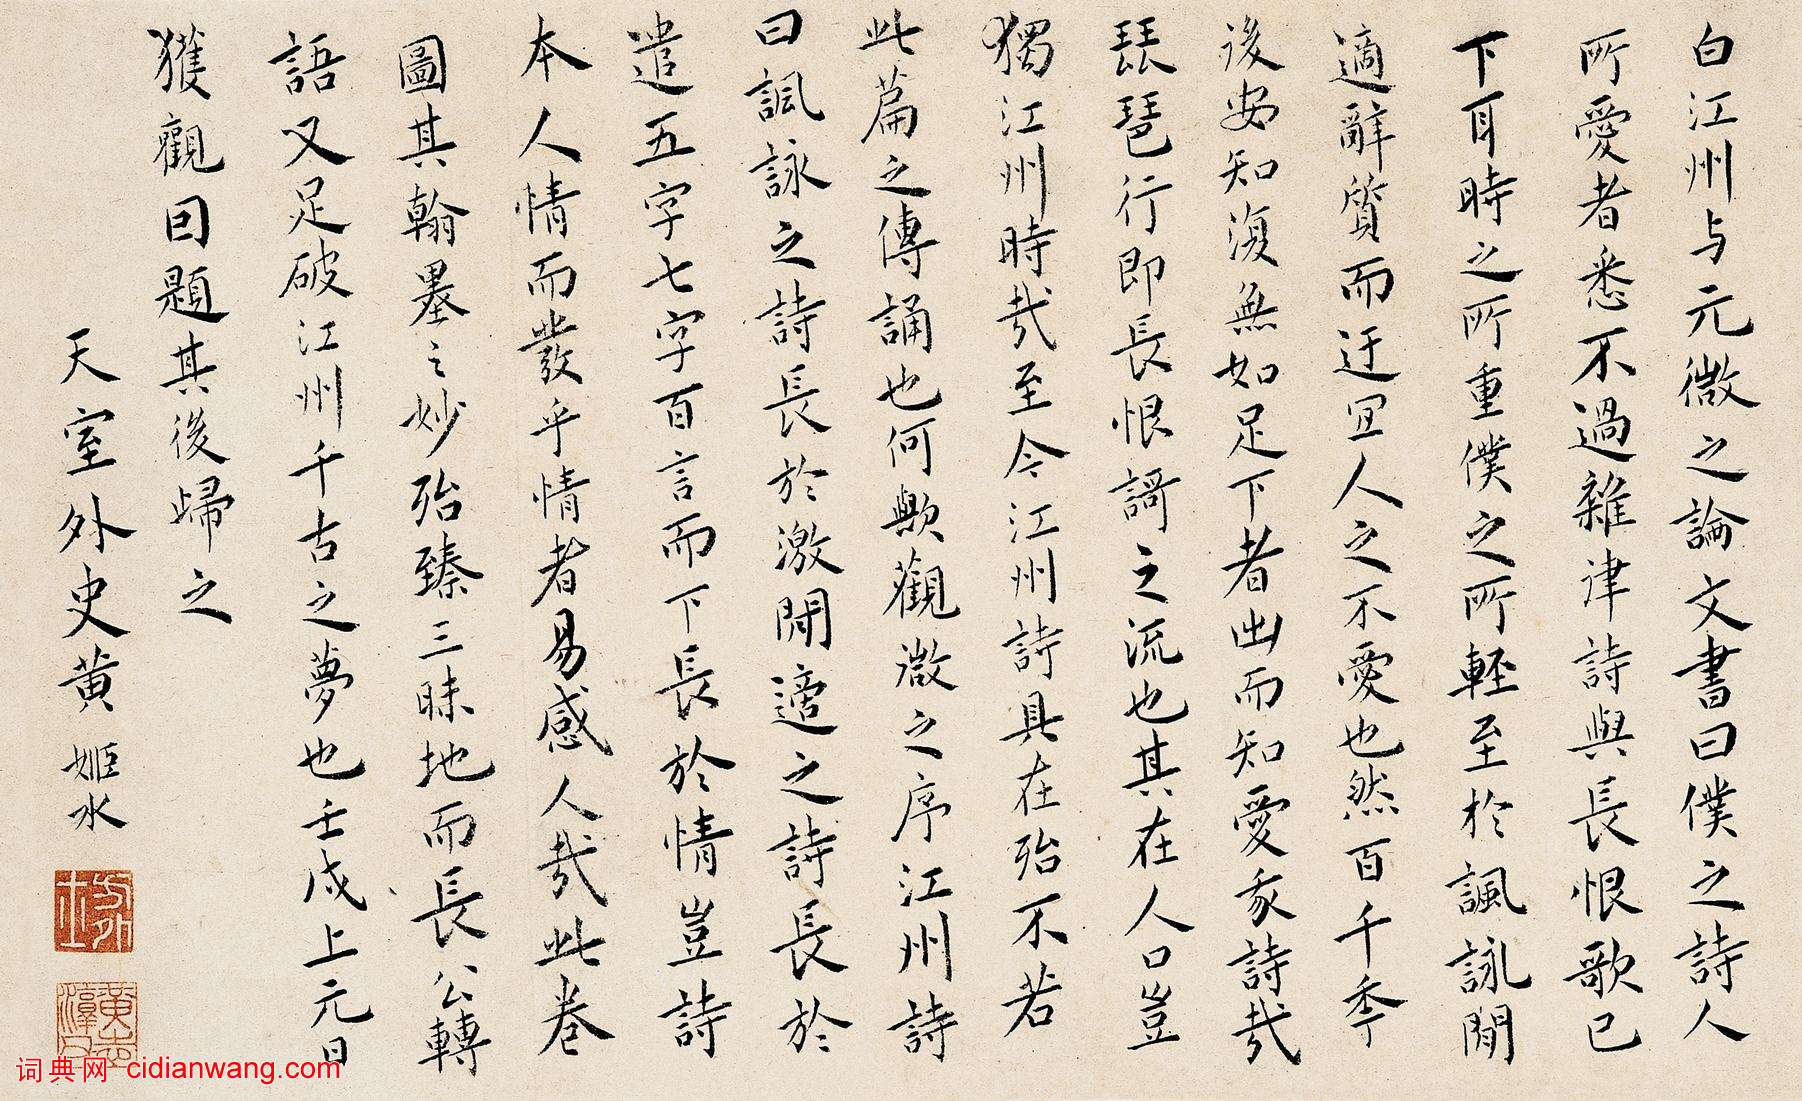 白江州与元微之論文書曰僕之詩人
所愛者悉不過雜津詩與長恨歌已
下耳時之所重僕之所輕至於諷詠閒
適辭質而迂宜人之不愛也然百千季
後安知復無如足下者出而知愛我詩哉
琵琶行即長恨謌之流也其在人口豈
獨江州時哉至今江州詩具在殆不若
此篇之傳誦也何歟觀微之序江州詩
曰諷詠之詩長於激閒適之詩長於
遣五字七字百言而下長於情豈詩
本人情而發乎情者易感人哉此卷
圖其翰墨之妙殆臻三昧地而長公轉
語又足破江州千古之夢也壬戌上元日
獲觀因題其後歸之
天室外史黃姬水
词典网 cidianwang.com